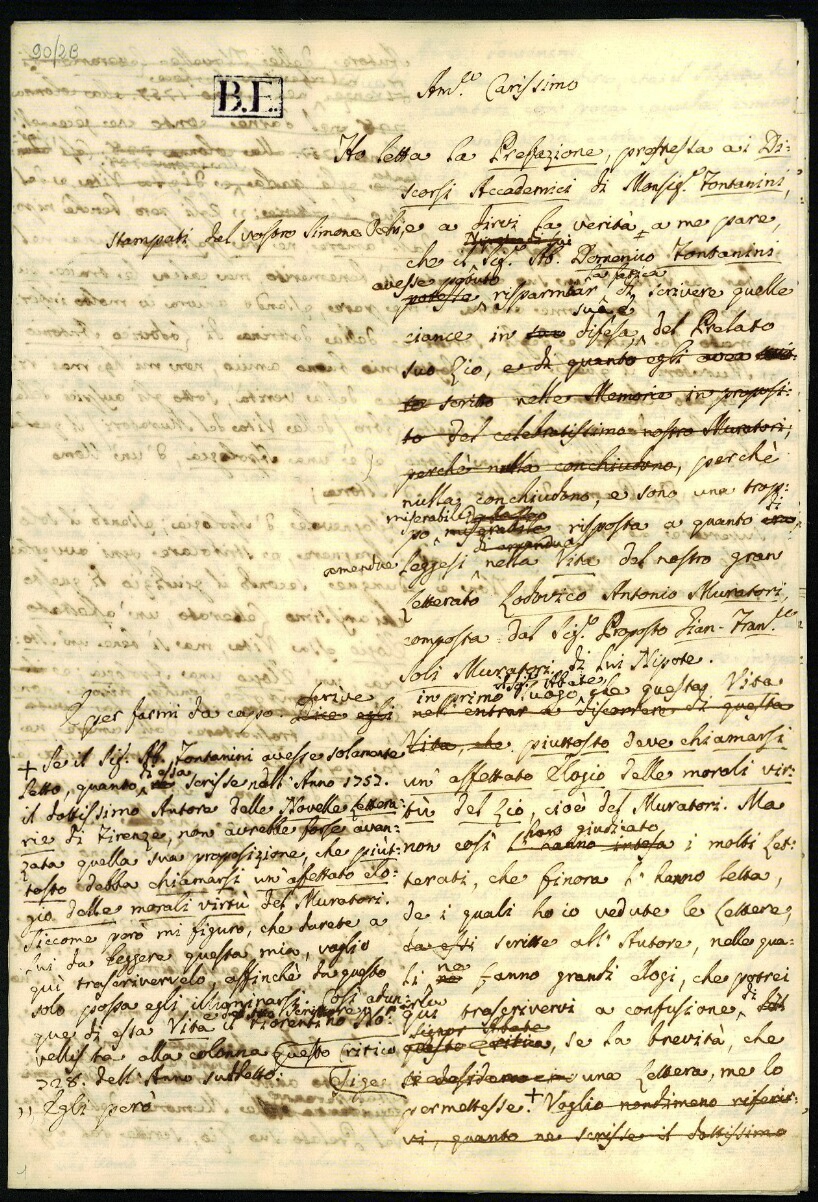 90/2B
B.E.
Am.co Carissimo
Ho letta la Prefazione, premessa ai Di-
scorsi Accademici di Monsig.r Fontanini,
stampati dal vostro Simone Occhi, e a dirvi la verità a me pare,
che il Sig.r Ab. Domenico Fontanini
avesse potuto
la fatica
potesse risparmiar di scrivere quelle
sua, e
ciance in sua difesa, del Prelato
suo Zio, e di quanto egli avea
to scritto nelle Memorie in proposi-
to del celebratissimo nostro Muratori,
perchè nulla conchiudono, perchè
nulla conchiudono, e sono una trop-
miserabile
po miserabile risposta a quanto
di amendue
amendue
leggesi nella Vita del nostro gran
Letterato Lodovico Antonio Muratori,
composta dal Sig.r Proposto Gian-Fran.co
Soli Muratori di lui Nipote.
E per farmi da capo scrive
Dice egli
in primo luogo, che questa Vita
nell'entrar a discorrere di questa
Vita, che piuttosto deve chiamarsi
un' affettato Elogio delle morali vir-
tù del Zio, cioè del Muratori. Ma
non così hanno giudicato
hanno intesa i molti Let-
terati, che finora l' hanno letta,
de i quali ho io vedute le Lettere,
da essi scritte all' Autore, nelle qua-
li ne fanno grandi elogi, che potrei
qui trascrivervi a confusione di
Signor Abate
questo Critico, se la brevità, che
si desidera in una Lettera, me lo
permettesse. + Voglio nondimeno riferir-
vi, quanto ne scrisse il dottissimo
+ Se il Sig. Ab. Fontanini avesse solamente
letto, quanto di essa scrisse nell' Anno 1757.
il dottissimo Autore delle Novelle Lettera-
rie di Firenze, non avrebbe forse avan-
zata quella sua proposizione, che piut-
tosto debba chiamarsi un' affettato Elo-
gio delle morali virtù del Muratori.
Siccome però mi figuro, che darete a
lui da leggere questa mia, voglio
qui trascrivervelo, affinchè da questo
solo possa egli illuminarsi. Così adun-
que di essa Vita e il Fiorentino No-
vellista alla colonna
questo Critico
328. dell' Anno suddetto:
" Egli però
1